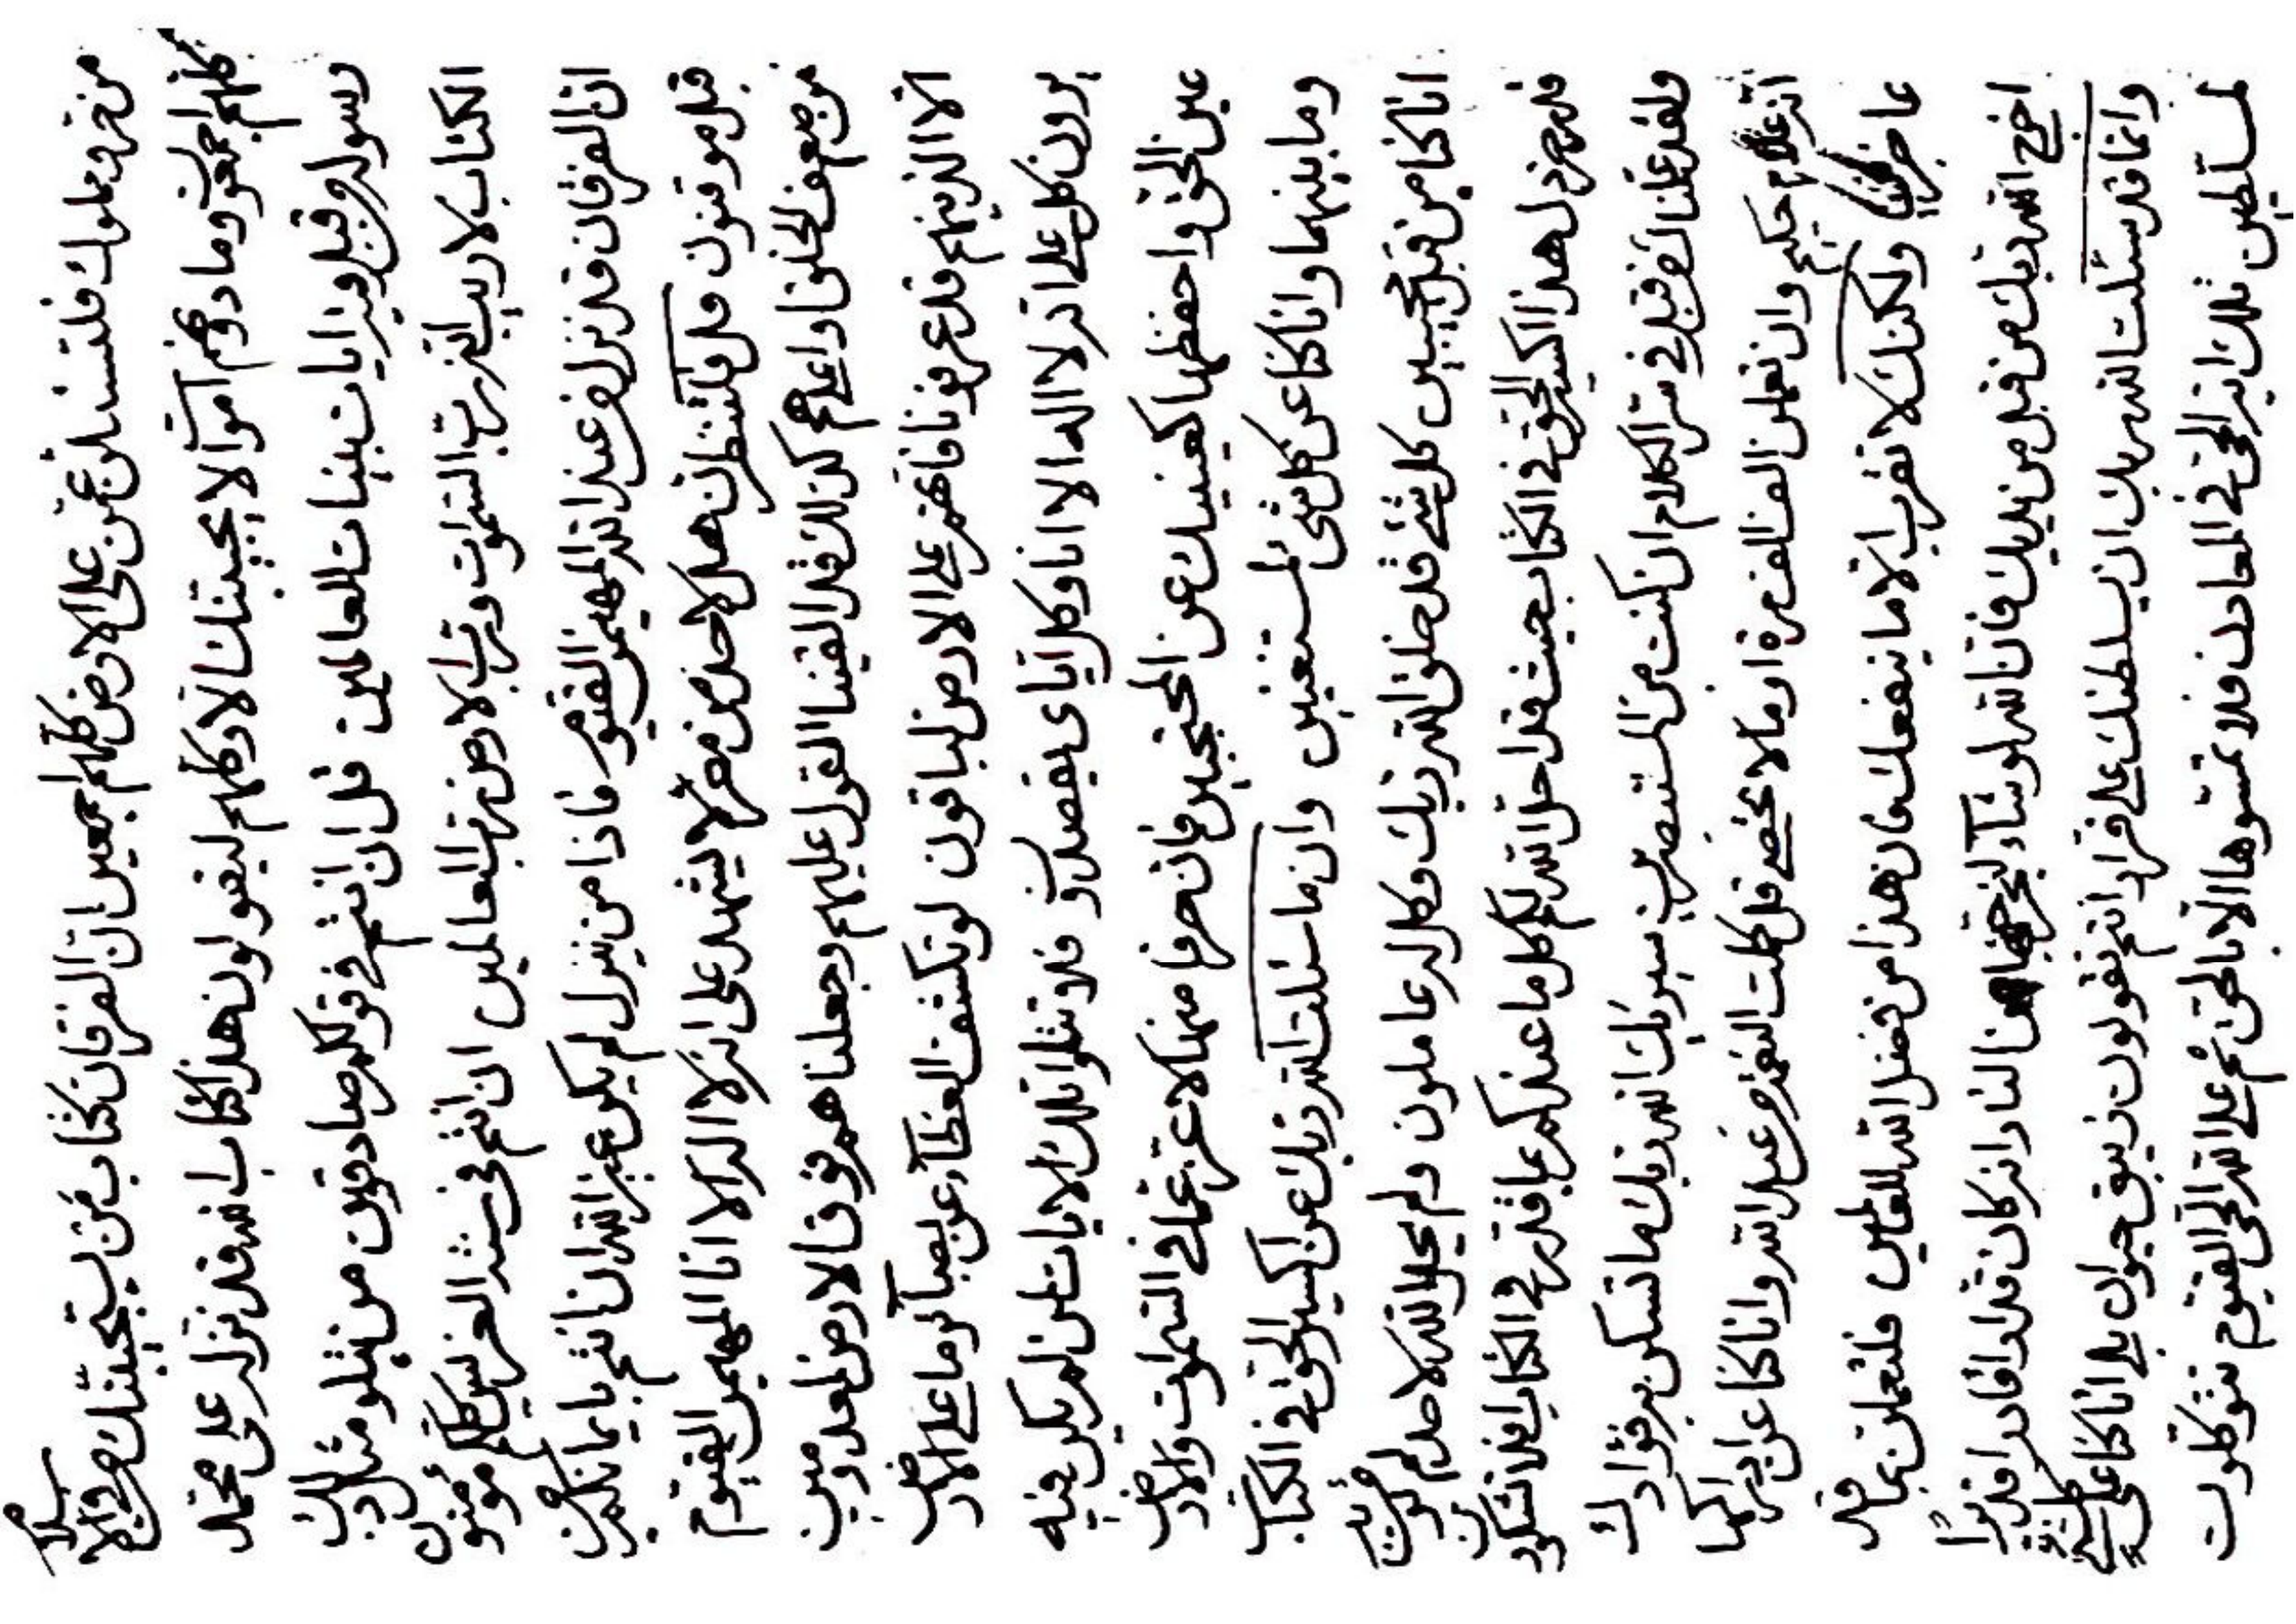 من فلتسئلن عمن على الارض كلهم اجمعين ان الفرقان كتاب من يستجيبنك من في الاسلام
كلهم اجمعون وما دونهم امة الا يجيبنك الا وكلهم ليقولون هذا كتاب الله قد نزله على محمد
رسوله من قبل وفيه ايات بينات للعالمين قل ان انتم في قولكم صادقون من يتلو مثل ذلك
الكتاب لا ريب انه رب السموات ورب الارض رب العالمين ان انتم في كلكم مؤمنون
ان الفرقان قد نزل من عند الله المهيمن القيوم فاذا من ينزل لم يكن غير الله ان انتم بايمانكم
قبل موقنون قل فلتنظرن هل لاحد من مفر الا يشهد على انه لا اله الا انا المهيمن القيوم
من الخلق او اعلاهم كذلك قد القينا القول عليهم وجعلناهم فوق الارض
الا الذينهم قد عرفونا فانهم على الارض لباقون لو تكشف الغطآء عن بصآئر ما على الارض
يرون كل على انه لا اله الا انا وكل اياى يقصدون فلا تتلوا تلك الايات لمن لم يكن فيه
عين الحق واحفظها كعينيك عن المحتجبين فان حرفا منها لاعز عما في السموات والارض
وما بينهما وانا كنا عن كل شئ لمستغنين وان ما سئلت الله ربك عن اكسير الحق في الكتاب
انا كنا من قبل مجيبين كل شئ قد خلق الله ربك وكل له عاملون ولم يحل الله لاحد
قد نزل هذا اكسير الحق في الكتاب بحيث قد احل الله لكم كل ما عندكم عما قدر في الكتاب افلا تشكرون
ولقد علمناك من قبل في سر الكلام ان كنت من المستبصرين سيريك الله ربك ما تسكن به فؤادك
انه علام حكيم وان تعملن الف الف مرة او ما لا يحصى قل كلت النعمة من عند الله وانا كنا عن
عاجزين ولكنك لا تقرب الا ما ينفعك فان هذا من فضل الله للعالمين فلتعملن بما قد
اخرج الله ربك من قبل من يديك فان الله لو شآء ليخرجنها من النار انه كان قدارا قادرا قديرا
وانما قد سئلت الله ربك ان يسلطنك على فرار انتم تقولون زيبق حيوان بلى انا كنا على كل شئ
لمسلطين تلك انيه الحق في المعادن فلا تمسوها الا بالحق ثم على الله الحى القيوم تتوكلون